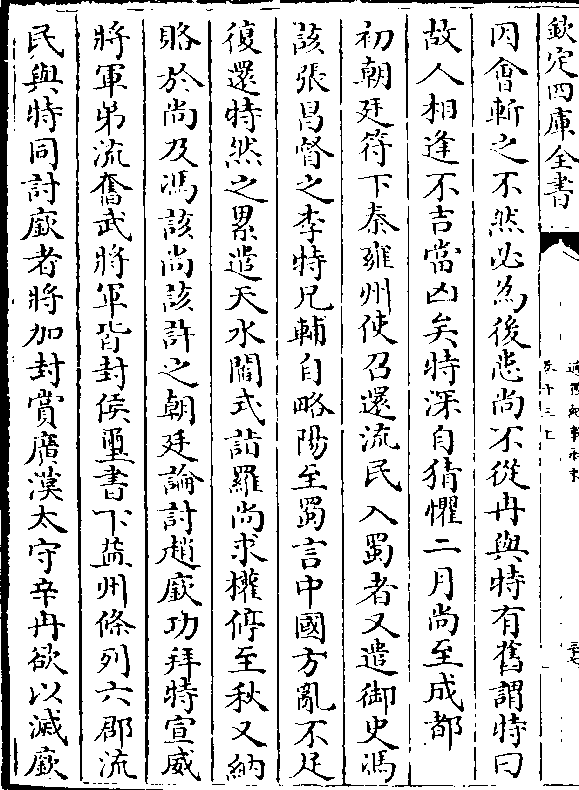 欽定四庫全書
因會斬之不然必為後患尚不從冉與特有舊謂特曰
故人相逢不吉當凶矣特深自猜懼二月尚至成都
初朝廷符下秦雍州使召還流民入蜀者又遣御史馮
該張昌督之李特兄輔自略陽至蜀言中國方亂不足
復還特然之累遣天水閻式詣羅尚求權停至秋又納
賂於尚及馮該尚該許之朝廷論討趙廞功拜特宣威
將軍弟流奮武將軍皆封侯璽書下益州條列六郡流
民與特同討廞者將加封賞廣漢太守辛冉欲以滅廞